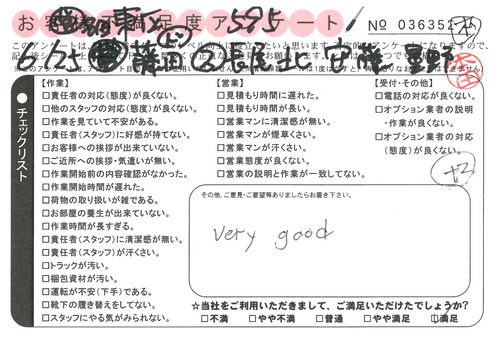 お客様不満足度アンケート
No 036352
【作業】
□責任者の対応(態度)が良くない。
□他のスタッフの対応(態度)が良くない。
□作業を見ていて不安がある。
□責任者(スタッフ)に好感が持てない。
□お客様への挨拶が出来ていない。
□ご近所への挨拶・気遣いが無い。
□作業開始前の内容確認がなかった。
□作業開始時間が遅れた。
□荷物の取り扱いが雑である。
□お部屋の養生が出来ていない。
□作業時間が長すぎる。
□責任者(スタッフ)に清潔感が無い。
□責任者(スタッフ)が汗くさい。
□トラックが汚い。
□梱包資材が汚い。
□運転が不安(下手)である。
□靴下の履き替えをしてない。
□スタッフにやる気がみられない。
【営業】
□見積もり時間に遅れた。
□見積もり時間が長い。
□営業マンに清潔感が無い。
□営業マンが煙草くさい。
□営業マンが汗くさい。
□営業態度が良くない。
□営業の説明と作業が一致してない。
【受付・その他】
□電話の対応が良くない。
□オプション業者の説明
・作業が良くない。
□オプション業者の対応
(態度)が良くない。
チェックリスト
その他、ご意見・ご要望等ありましたらお書き下さい。
very good
☆当社をご利用いただきまして、ご満足いただけたでしょうか?
□不満 □やや不満 □普通 □やや満足 □満足